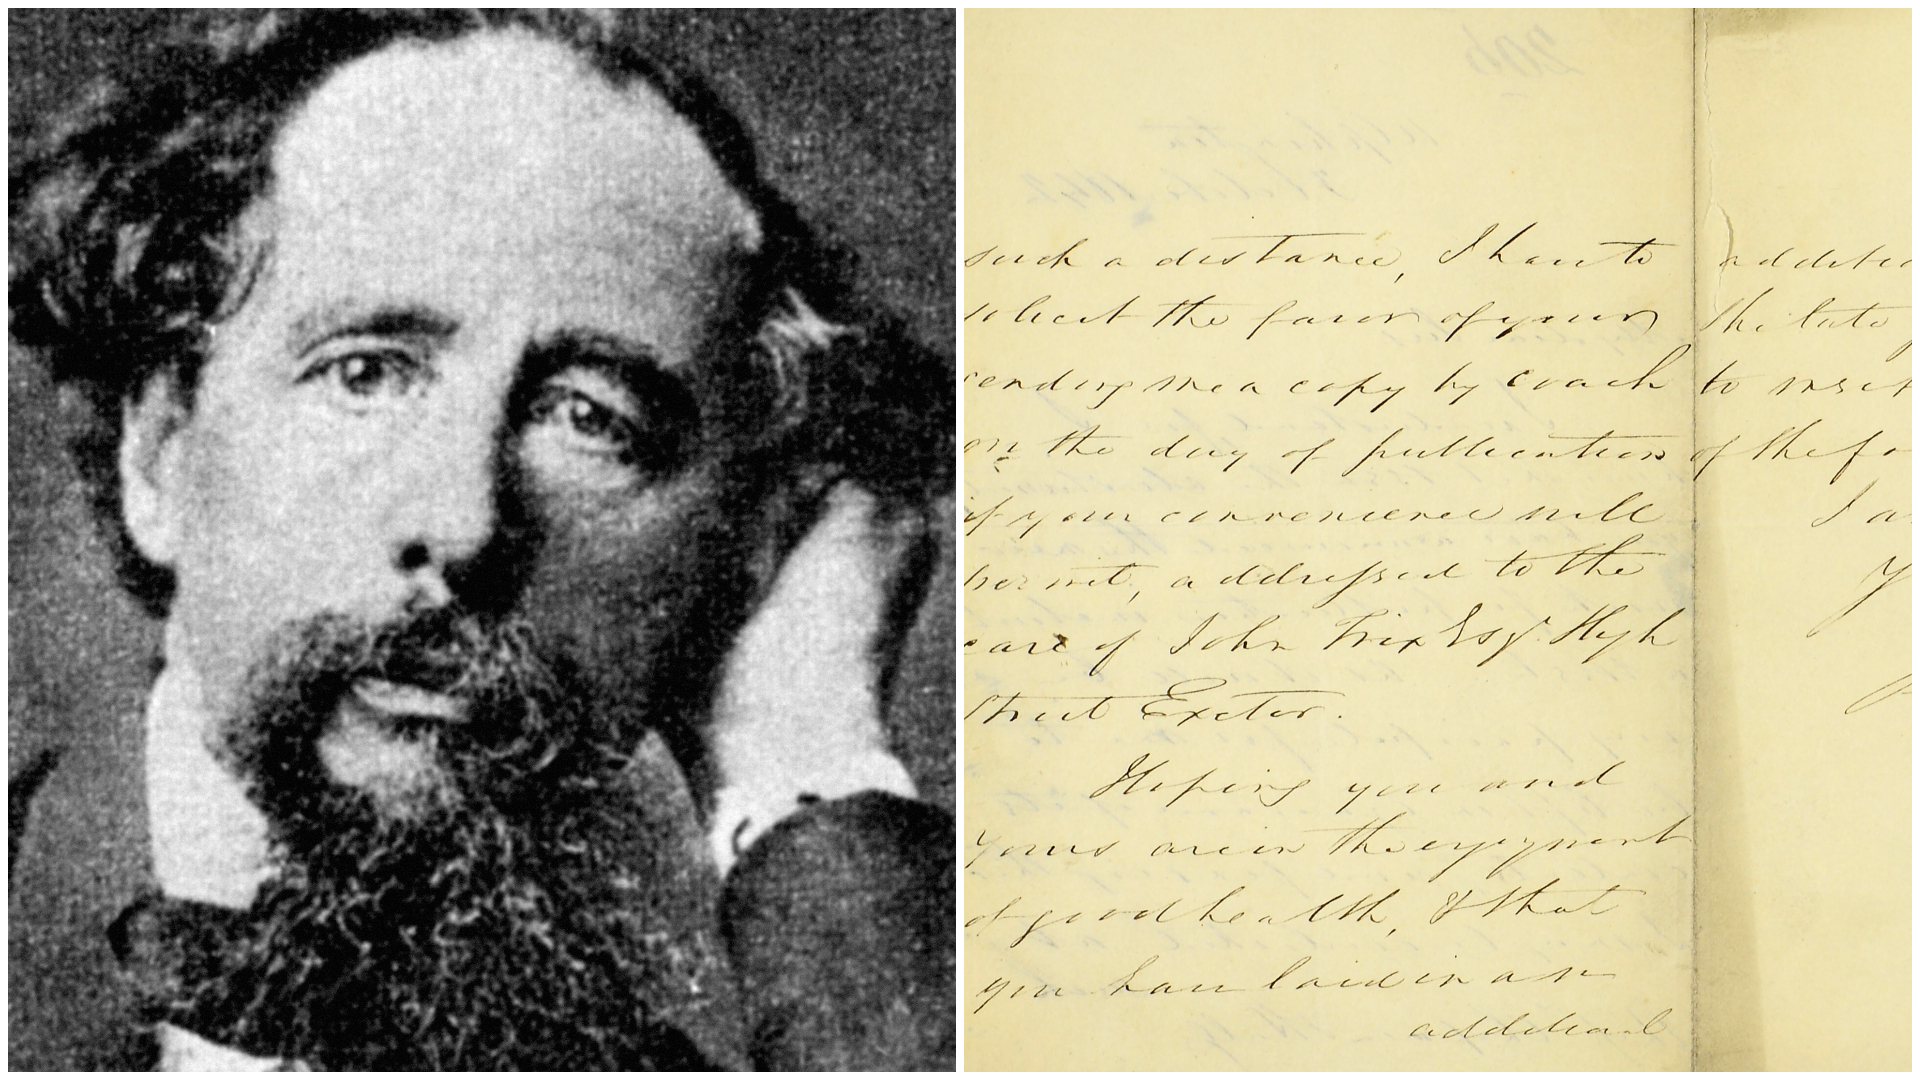 such a distance, I have to
solicit the favor of your
sending me a copy by coach
on the day of publication
if your convenience will
permit, addressed to the
care of John Trix Esqr. High
Street Exeter.
Hoping you and
yours are in the enjoyment
of good health, & that
you have laid in an
additional
the late
to
of the
I